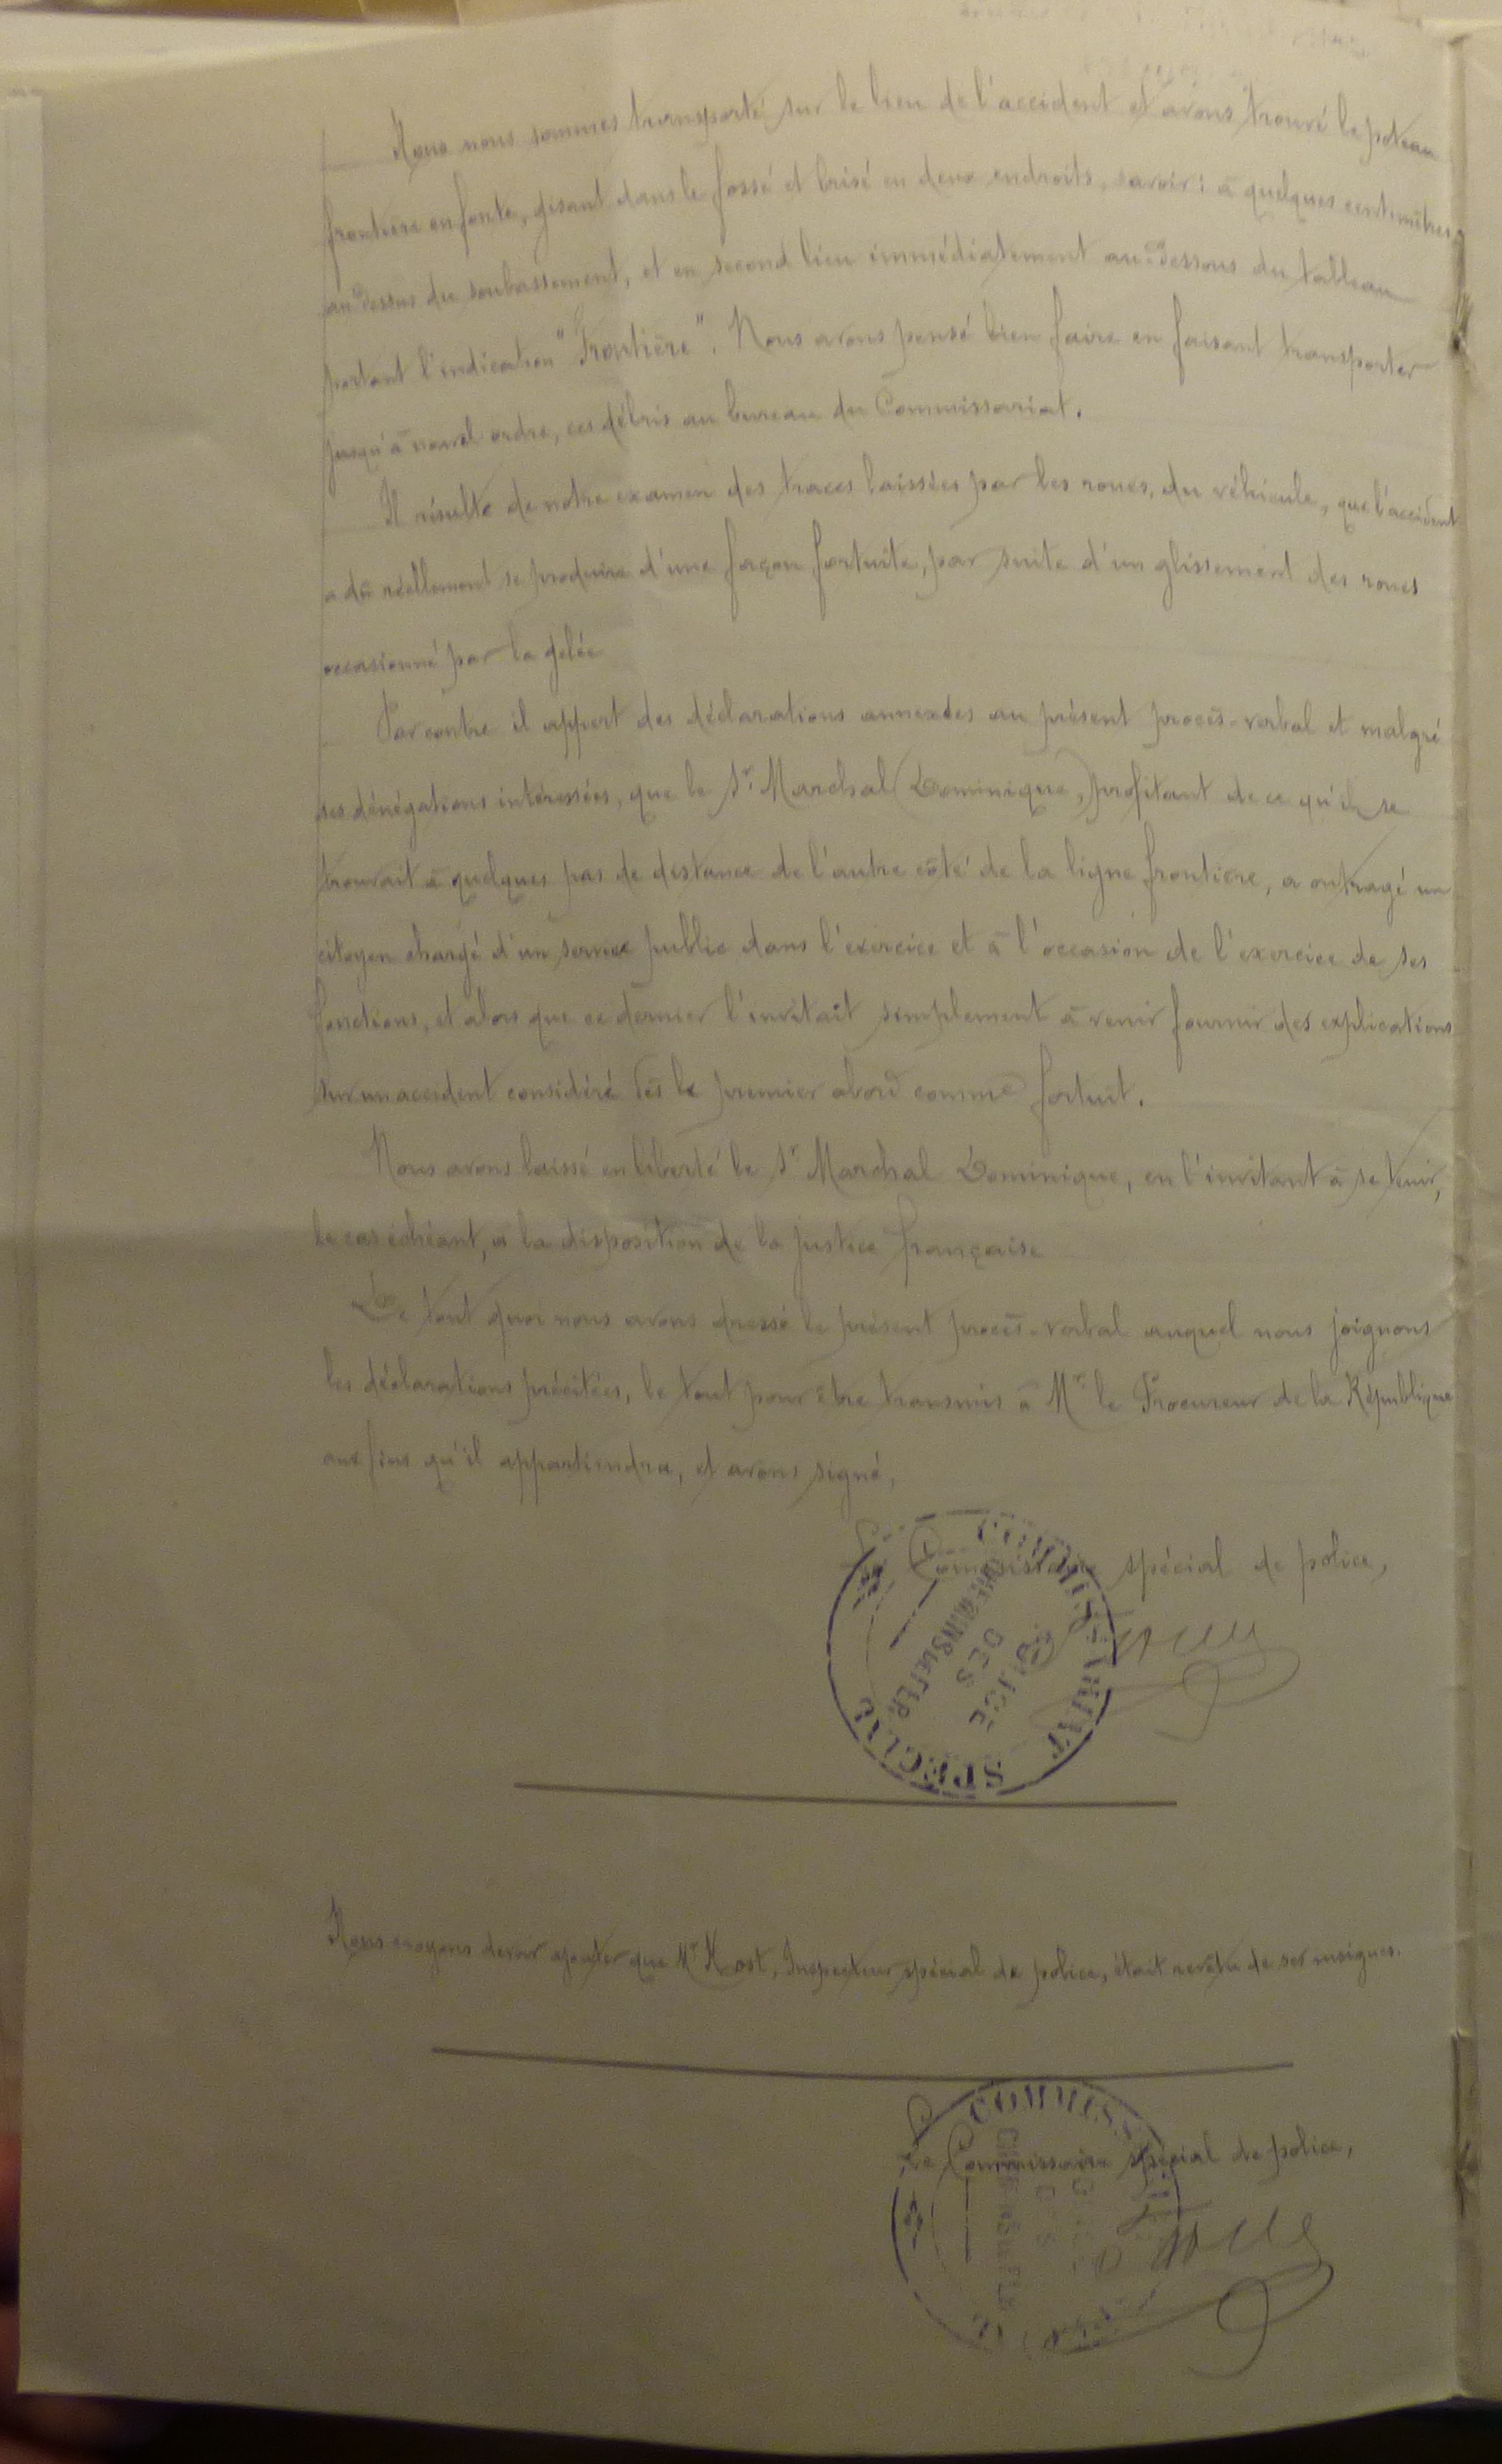 Nous nous sommes transporté sur le lieu de l'accident et avons trouvé le poteau
frontière en fonte, gisant dans le fossé et brisé en deux endroits, savoir : à quelques centimètres
au-dessus du soubassement, et en second lieu immédiatement au-dessous du tableau
portant l'indication "Frontière". Nous avons pensé bien faire en faisant transporter
jusqu'à nouvel ordre, ces débris au bureau du Commissariat.
Il résulte de notre examen des traces laissées par les roues, du véhicule, que l'accident
a dû réellement se produire d'une façon fortuite, par suite d'un glissement des roues
occasionné par la gelée
Par contre il appert des déclarations annexées au présent procès-verbal et malgré
ses dénégations intéressées, que le Sr. Marchal (Dominique,) profitant de ce qu'il se
trouvait à quelques pas de distance de l'autre côté de la ligne frontière, a outragé un
citoyen chargé d'un service public dans l'exercice et à l'occasion de l'exercice de ses
fonctions, et alors que ce dernier l'invitait simplement à venir fournir des explications
sur un accident considéré dès le premier abord comme fortuit.
Nous avons laissé en liberté le Sr Marchal Dominique, en l'invitant à se tenir,
le cas échéant, à la disposition de la justice française
De tout quoi nous avons dressé le présent procès-verbal auquel nous joignons
les déclarations précitées, le tout pour être transmis à Mr le Procureur de la République
aux fins qu'il appartiendra, et avons signé,
Le Commissaire spécial de police,
COMMISSARIAT SPECIAL
POLICE
DES
CHEMINS DE FER
Nous croyons devoir ajouter que Mr Kost, Inspecteur spécial de police, était revêtu de ses insignes.
Le Commissaire spécial de police,
COMMISS